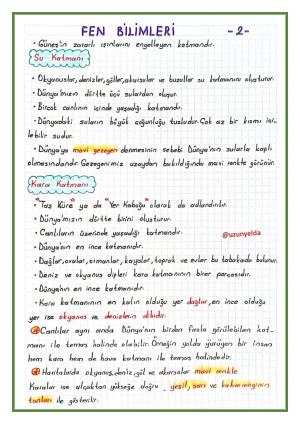 FEN BİLİMLERİ -2-
• Güneş'in zararlı ışınlarını engelleyen katmandır.
Su Katmanı
• Okyanuslar, denizler, göller, akarsular ve buzullar su katmanını oluşturur.
• Dünya'mızın dörtte üçü sulardan oluşur.
• Birçok canlının içinde yaşadığı katmandır.
• Dünyadaki suların büyük çoğunluğu tuzludur. Çok az bir kısmı içi-
lebilir sudur.
• Dünya'ya mavi gezegen denmesinin sebebi Dünya'mızın sularla kaplı
olmasındandır. Gezegenimiz uzaydan bakıldığında mavi renkte görünür.
Kara Katmanı
• "Taş Küre" ya da "Yer Kabuğu" olarak da adlandırılır.
• Dünya'mızın dörtte birini oluşturur.
• Canlıların üzerinde yaşadığı katmandır.
@uzunyelda
• Dünya'nın en ince katmanıdır.
• Dağlar, ovalar, ormanlar, kayalar, toprak ve evler bu tabakada bulunur.
• Deniz ve okyanus dipleri kara katmanının birer parçasıdır.
• Dünya'nın en ince katmanıdır.
• Kara katmanının en kalın olduğu yer dağlar, en ince olduğu
yer ise okyanus ve denizlerin dibidir.
Canlılar aynı anda Dünya'nın birden fazla görülebilen kat-
manı ile temas halinde olabilir. Örneğin yolda yürüyen bir insan
hem kara hem de hava katmanı ile temas halindedir.
Haritalarda okyanus, deniz, göl ve akarsular mavi renkle
Karalar ise alçaktan yükseğe doğru yeşil, sarı ve kahverenginin
tonları ile gösterilir.